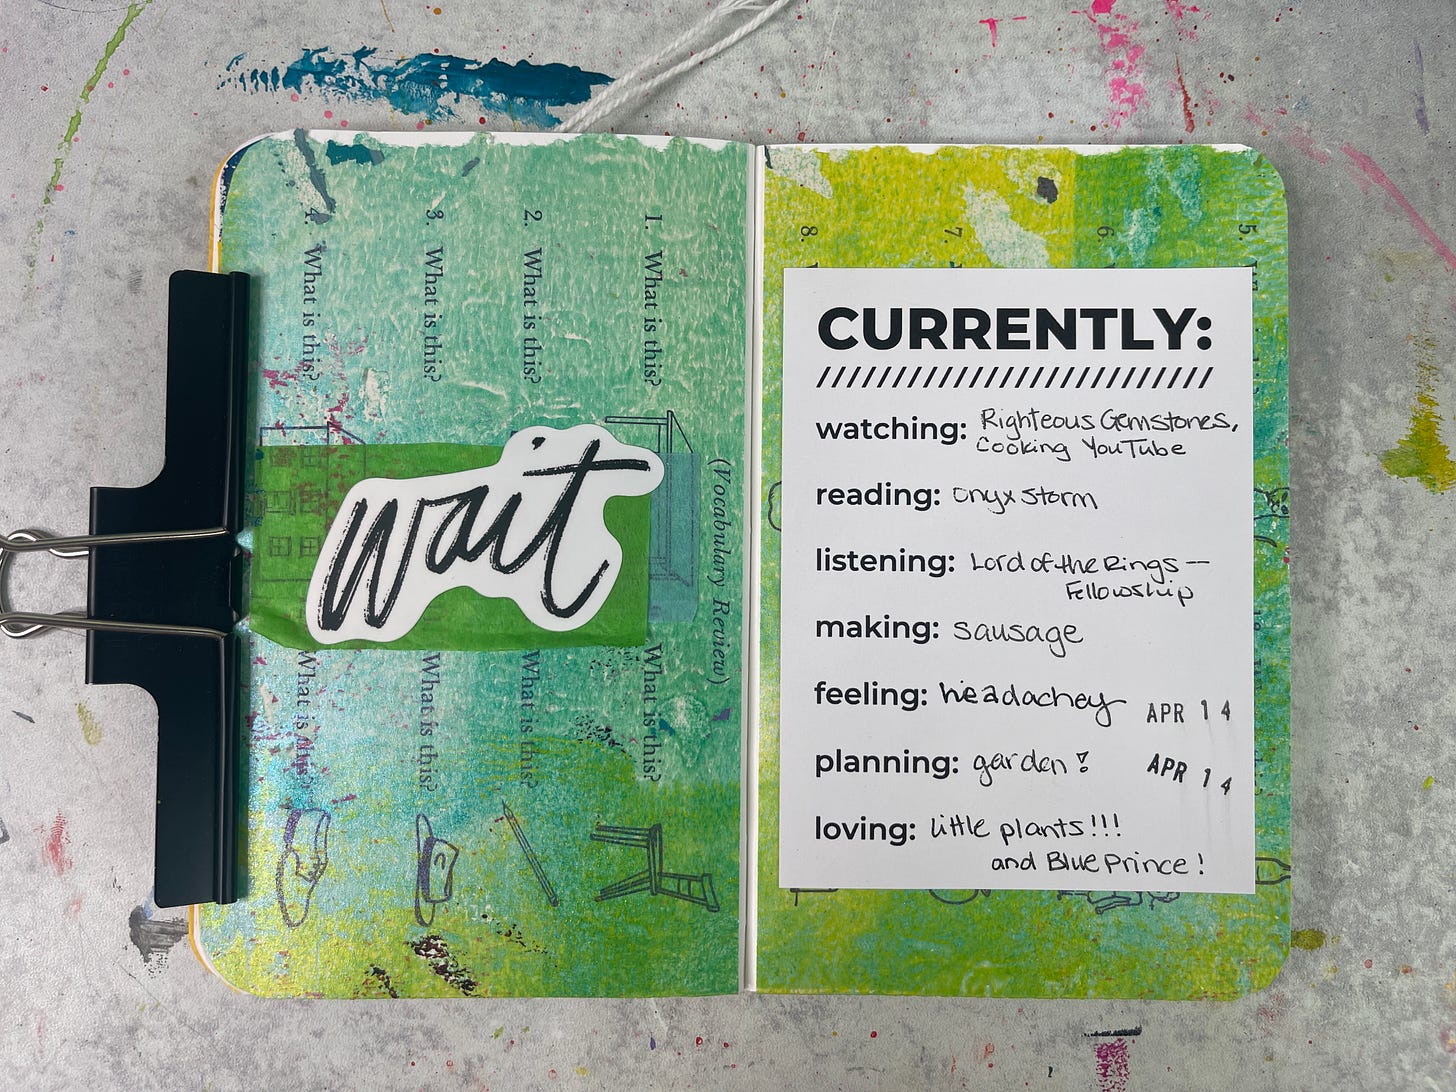 1. What is this?
2. What is this?
3. What is this?
4. What is this?
(Vocabulary Review)
wait
What is this?
What is this?
What is this?
What is this?
5.
6.
7.
8.
CURRENTLY:
watching: Righteous Gemstones,
Cooking YouTube
reading: Onyx Storm
listening: Lord of the Rings —
Fellowship
making: sausage
feeling: headachey APR 14
planning: garden! APR 14
loving: little plants!!!
and Blue Prince!